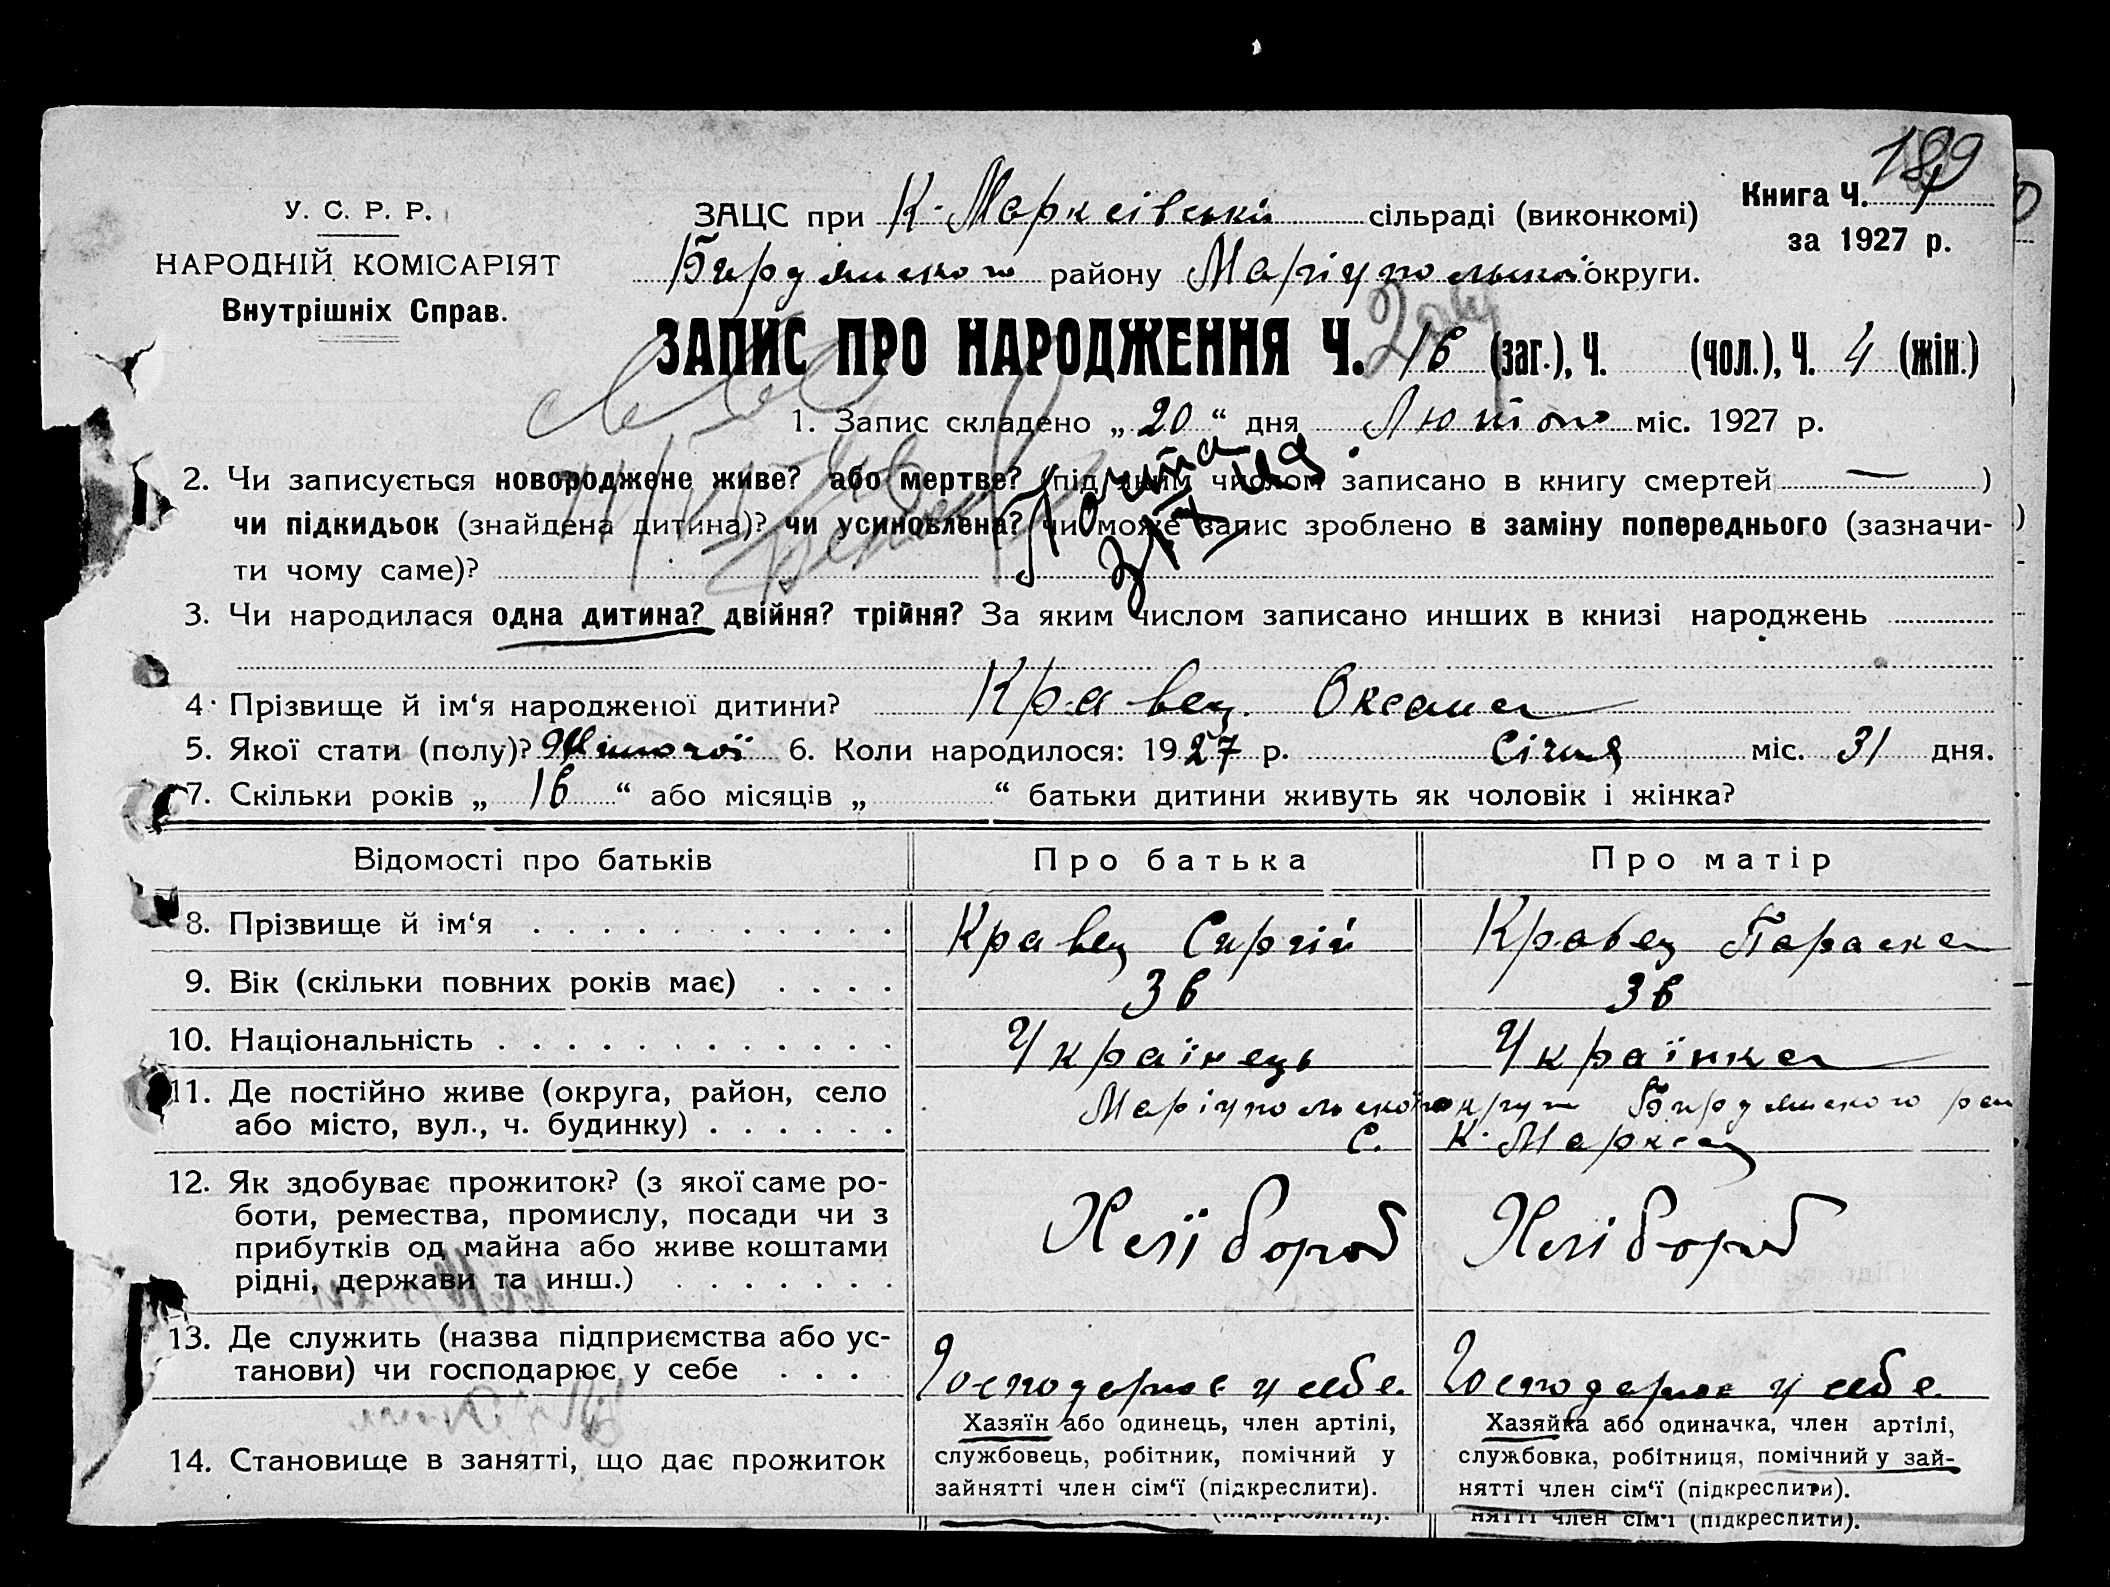 199
У. С. Р. Р.
НАРОДНІЙ КОМІСАРІЯТ
Внутрішніх Справ.
ЗАЦС при К-Марксівській сільраді (виконкомі)
Книга Ч.
за 1927 р.
Бирдянського району Маріупольської округи.
ЗАПИС ПРО НАРОДЖЕННЯ Ч. 16 (заг.), Ч. (чол.), Ч. 4 (жін.)
1. Запис складено „ 20 “ дня Лютого міс. 1927 р.
2. Чи записується новороджене живе? або мертве? (під яким числом записано в книгу смертей — )
чи підкидьок (знайдена дитина)? чи усиновлена? чи може запис зроблено в заміну попереднього (зазначи-
ти чому саме)?
3. Чи народилася одна дитина? двійня? трійня? За яким числом записано инших в книзі народжень
4. Прізвище й ім‘я народженої дитини? Кравец Оксана
5. Якої стати (полу)? Жіночої 6. Коли народилося: 1927 р. Січня міс. 31 дня.
7. Скільки років „ 16 “ або місяців „ “ батьки дитини живуть як чоловік і жінка?
Відомості про батьків Про батька Про матір
8. Прізвище й ім‘я Кравец Сиргій Кравец Параска
9. Вік (скільки повних років має) 36 36
10. Національність Українець Українка
11. Де постійно живе (округа, район, село Маріупольської округи Бирдянського рай
або місто, вул., ч. будинку) С. К-Маркса
12. Як здобуває прожиток? (з якої саме ро-
боти, ремества, промислу, посади чи з
прибутків од майна або живе коштами Хлібороб Хлібороб
рідні, держави та инш.)
13. Де служить (назва підприємства або ус-
танови) чи господарює у себе Господарює у себе Господарює у себе
14. Становище в занятті, що дає прожиток
Хазяїн або одинець, член артілі,
службовець, робітник, помічний у
зайнятті член сім‘ї (підкреслити).
Хазяйка або одиначка, член артілі,
службовка, робітниця, помічний у зай-
нятті член сім‘ї (підкреслити).
нятті член сім‘ї (підкреслити).